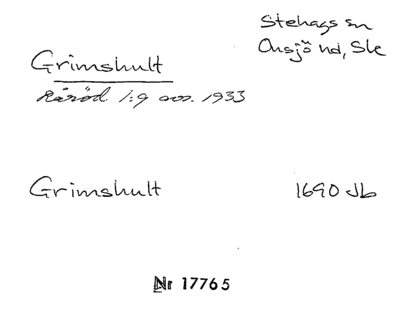 Stehags sn
Onsjö hd, Sk
Grimshult
Råröd 1:9 avs. 1933
Grimshult 1690 Jb
Nr 17765